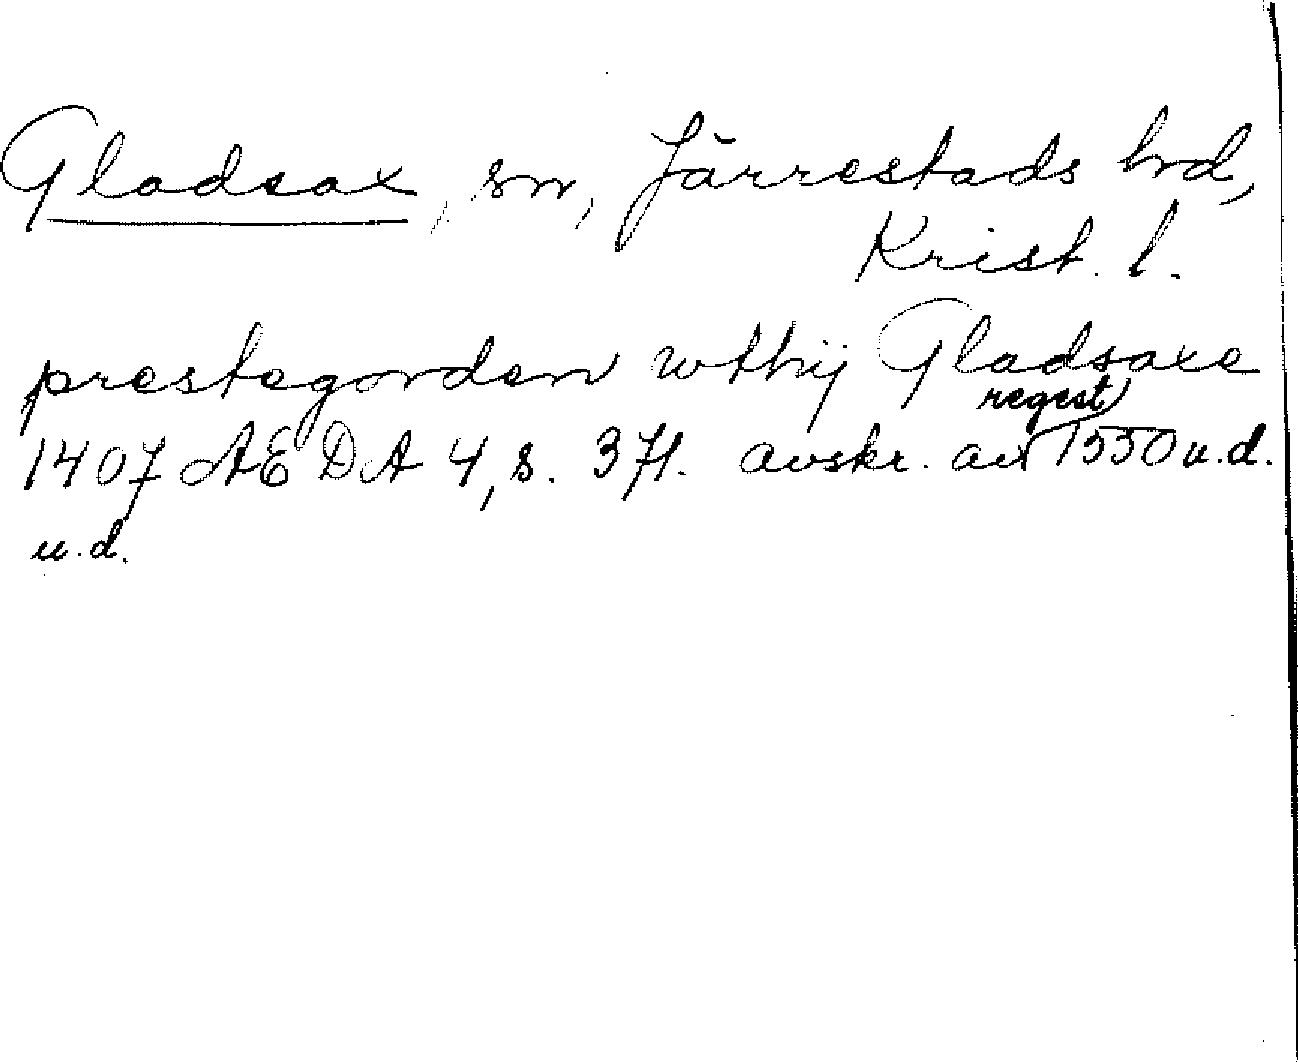 Gladsax, sn, Järrestads hd,
Krist. l.
prestegorden wthij Gladsaxe
1407 ÆDA 4, s. 371. avskr. av regest 1550 u.d.
u.d.